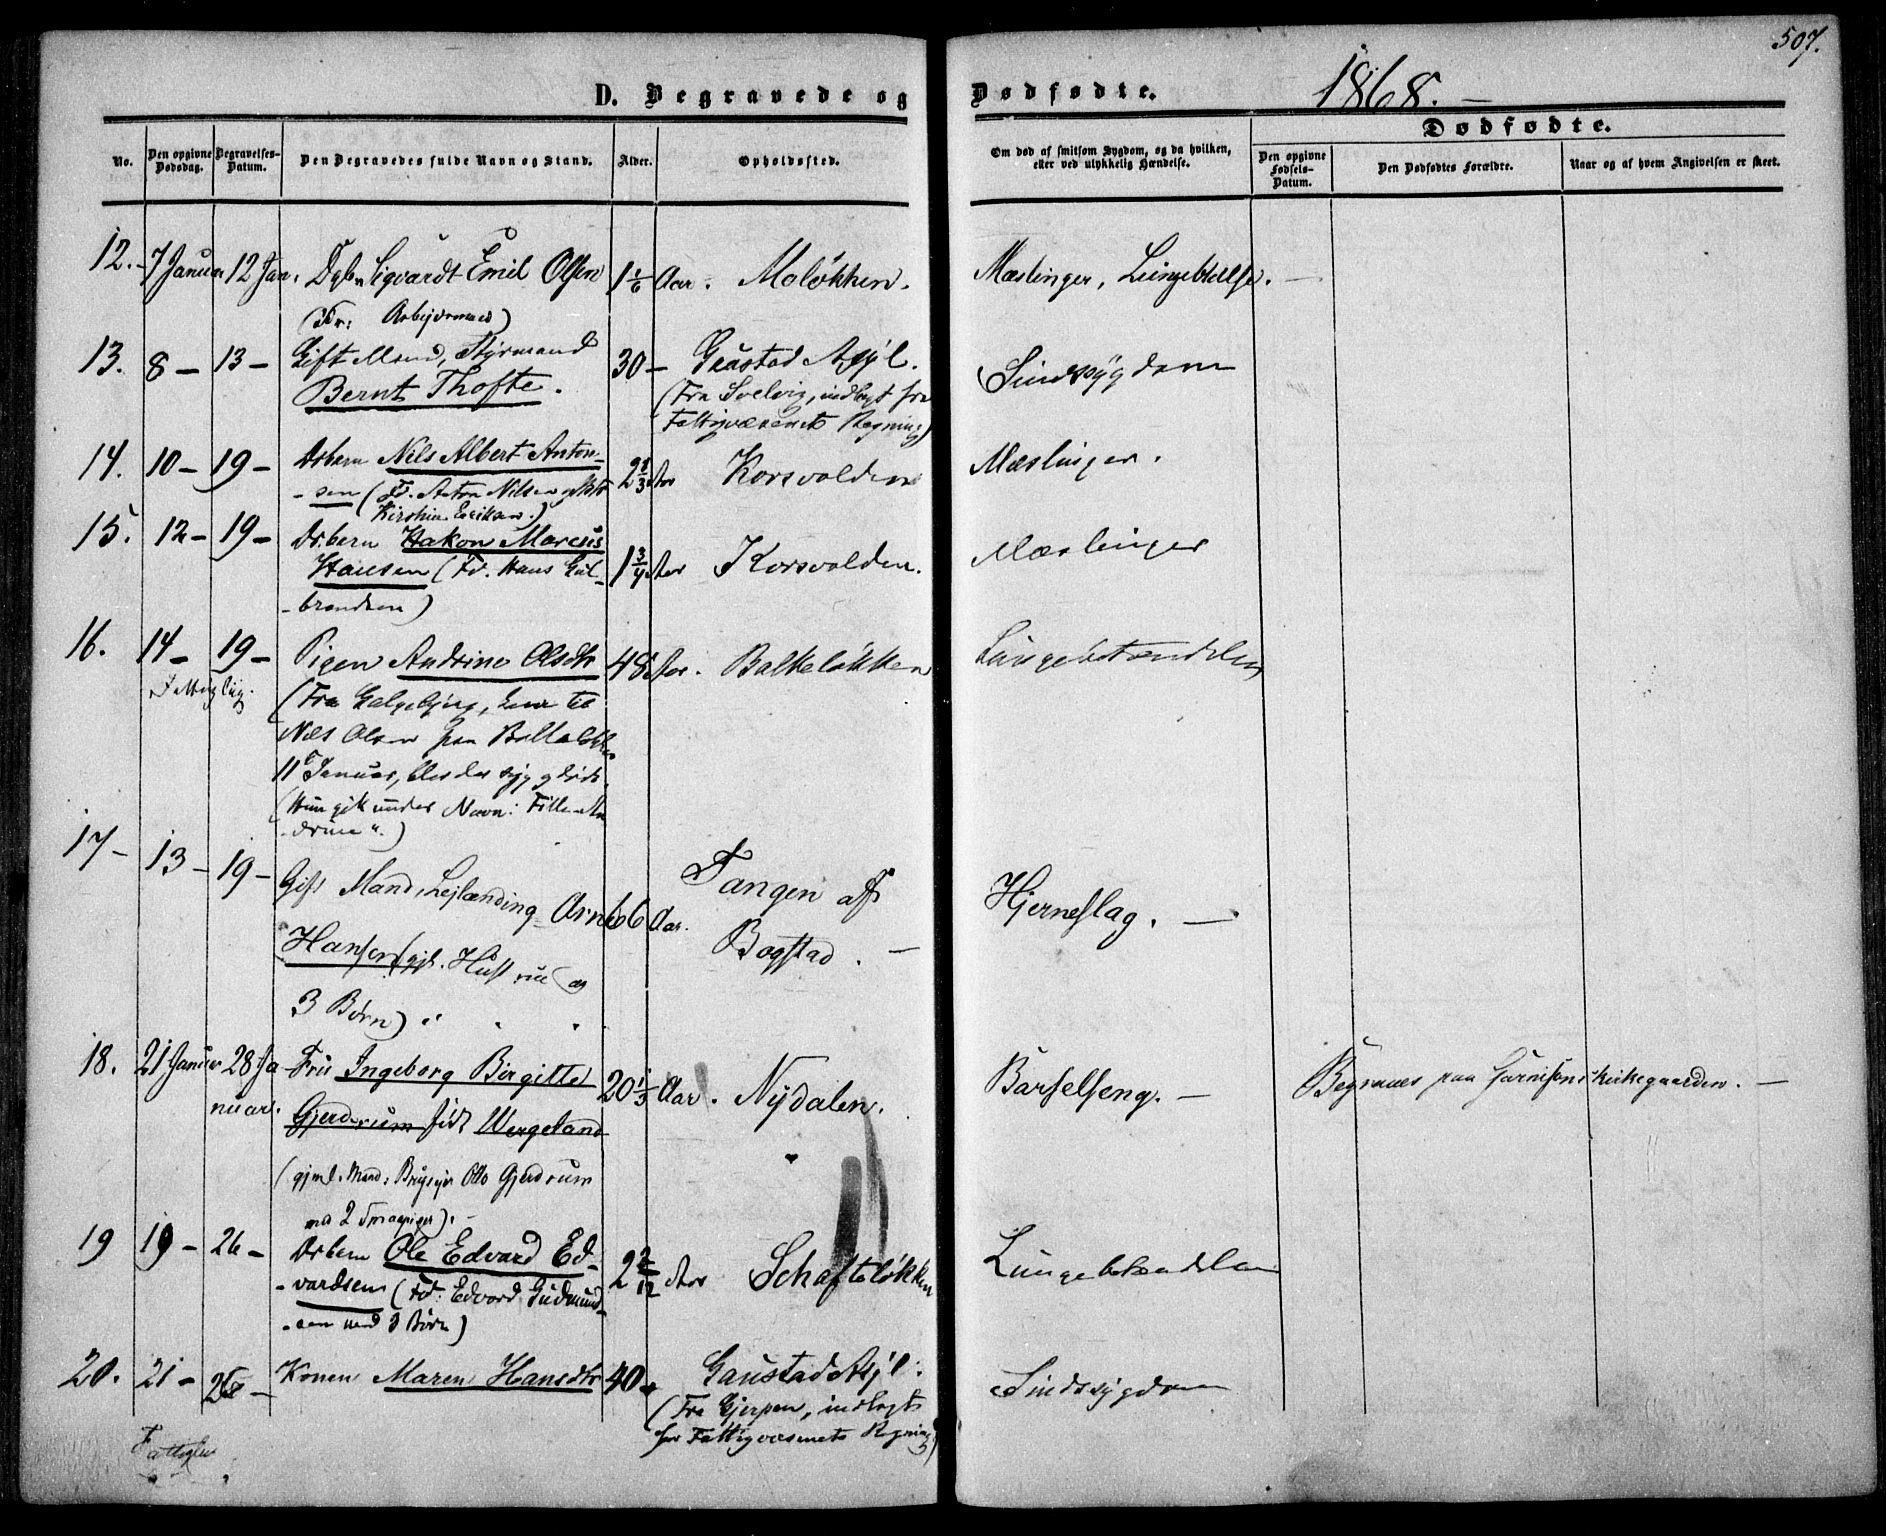 507.
D. Begravede og Dødfødte. 1868. –
Dødfødte.
No. Den opgivne Dødsdag. Begravelses-Datum. Den Begravedes fulde Navn og Stand. Alder. Opholdssted. Om død af smitsom Sygdom, og da hvilken, eller ved ulykkelig Hændelse. Den opgivne Fødsels-Datum. Den Dødfødtes Forældre. Naar og af hvem Angivelsen er skeet.
12. 7 Januar 12 Jan. Sigvardt Emil Olsen 1 1/6 Aar. Moløkken. Mæslinger, –
13. 8 – 13 – Gift Mand, Styrmand 30 – Gaustad Asyl. Sindssygdom
Bernt Thofte. (Fra Svelvig, indlagt for
Fattigvæsenets Regning)
14. 10 – 19 – Drbarn Nils Albert Anton- 2 Aar Korsvolden Mæslinger.
-sen (Fd. Anton Nilsen og
Eriksen.)
15. 12 – 19 – Drbarn Hakon Marcus 1 3/4 Aar Korsvolden. Mæslinger
Hansen (Fd. Hans Gul-
-brandsen)
16. 14 – 19 – Pigen Andrine Olsdtr 48 Aar. Balkeløkken Lungebetændelse
Fattiglig. (Fra Galgebjerg, kom til
Nils Olsen paa
11te Januar, blev der syg og døde.
(Hun gik under Navn: Fille-An
-drine".)
17 – 13 – 19 – Gift Mand, Lejlænding Arne 66 Aar. Tangen af Hjerneslag. –
Hansen (gjl. Hustrue og Bogstad. –
3 Børn)
18. 21 Januar 28 Ja- Fru Ingeborg Birgitte 20 1/3 Aar. Nydalen. Barselseng. – Begraves paa Garnisons kirkegaarden. –
nuar. Gjerdrum født Wergeland
(gjml. Mand: Brugseier Otto Gjerdrum
med 2 Smaapiger). –
19 19 – 26 – Drbarn Ole Edvard Ed- 2 2/12 Aar Schafteløkken Lungebetændelse
-vardsen (Fd: Edvard Gudmund-
-sen med 3 Børn)
20. 21 – 26 – Konen Maren Hansdtr 40 – Gaustad Asyl. Sindssygdom
(Fra Gjerpen, indlagt
for Fattigvæsenets Regning)
Fattiglig